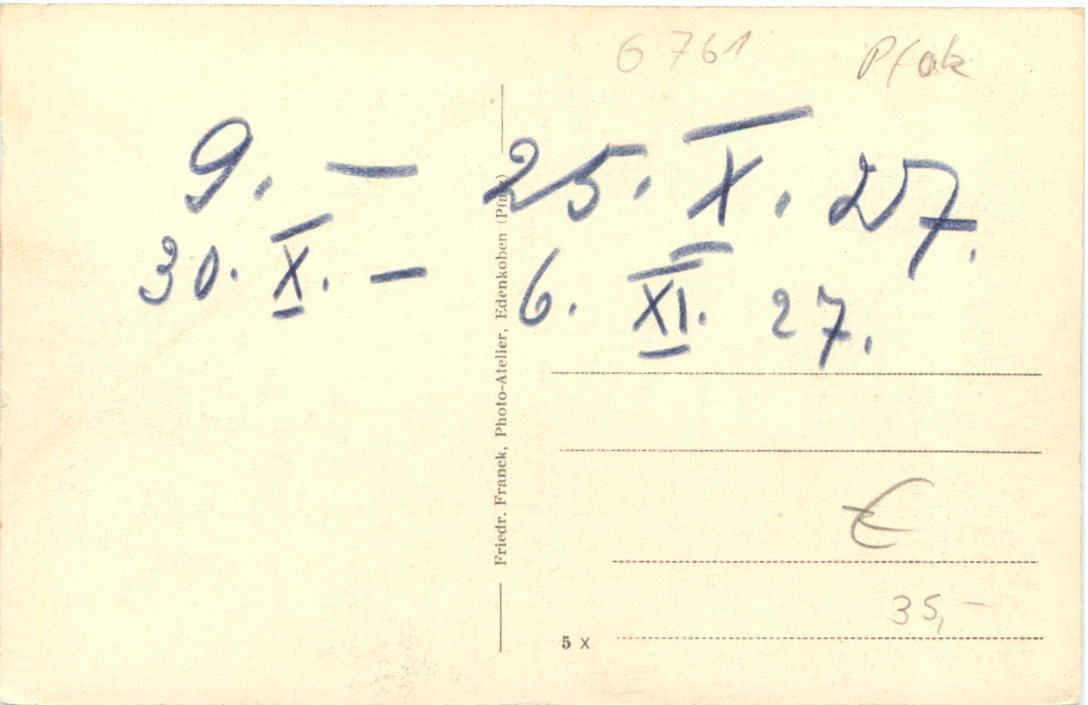 6761 Pfalz
9. – 25. X. 27.
30. X. – 6. XI. 27.
Friedr. Franck, Photo-Atelier, Edenkoben (Pfalz)
€
35,–
5 X